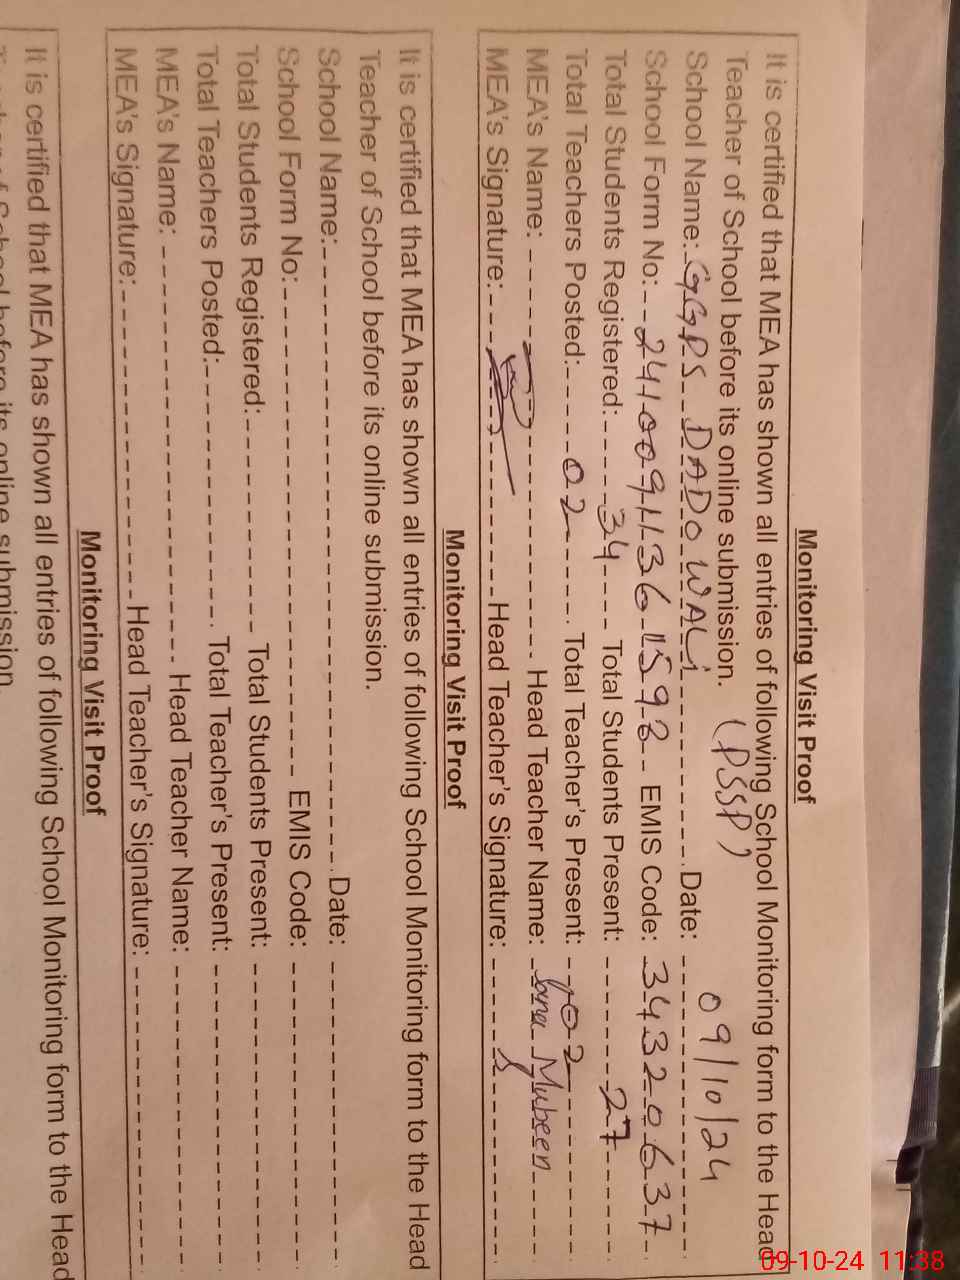 Monitoring Visit Proof
It is certified that MEA has shown all entries of following School Monitoring form to the Head
Teacher of School before its online submission. (PSSP)
School Name: GGPS DADOWALI Date: 09/10/24
School Form No: 24100911361593 EMIS Code: 34320637
Total Students Registered: 34 Total Students Present: 27
Total Teachers Posted: 02 Total Teacher's Present: 02
MEA's Name: Head Teacher Name: Mubeen
MEA's Signature: Head Teacher's Signature:
Monitoring Visit Proof
It is certified that MEA has shown all entries of following School Monitoring form to the Head
Teacher of School before its online submission.
School Name: Date:
School Form No: EMIS Code:
Total Students Registered: Total Students Present:
Total Teachers Posted: Total Teacher's Present:
MEA's Name: Head Teacher Name:
MEA's Signature: Head Teacher's Signature:
Monitoring Visit Proof
It is certified that MEA has shown all entries of following School Monitoring form to the Head
Teacher of School before its online submission.
09-10-24 11:38